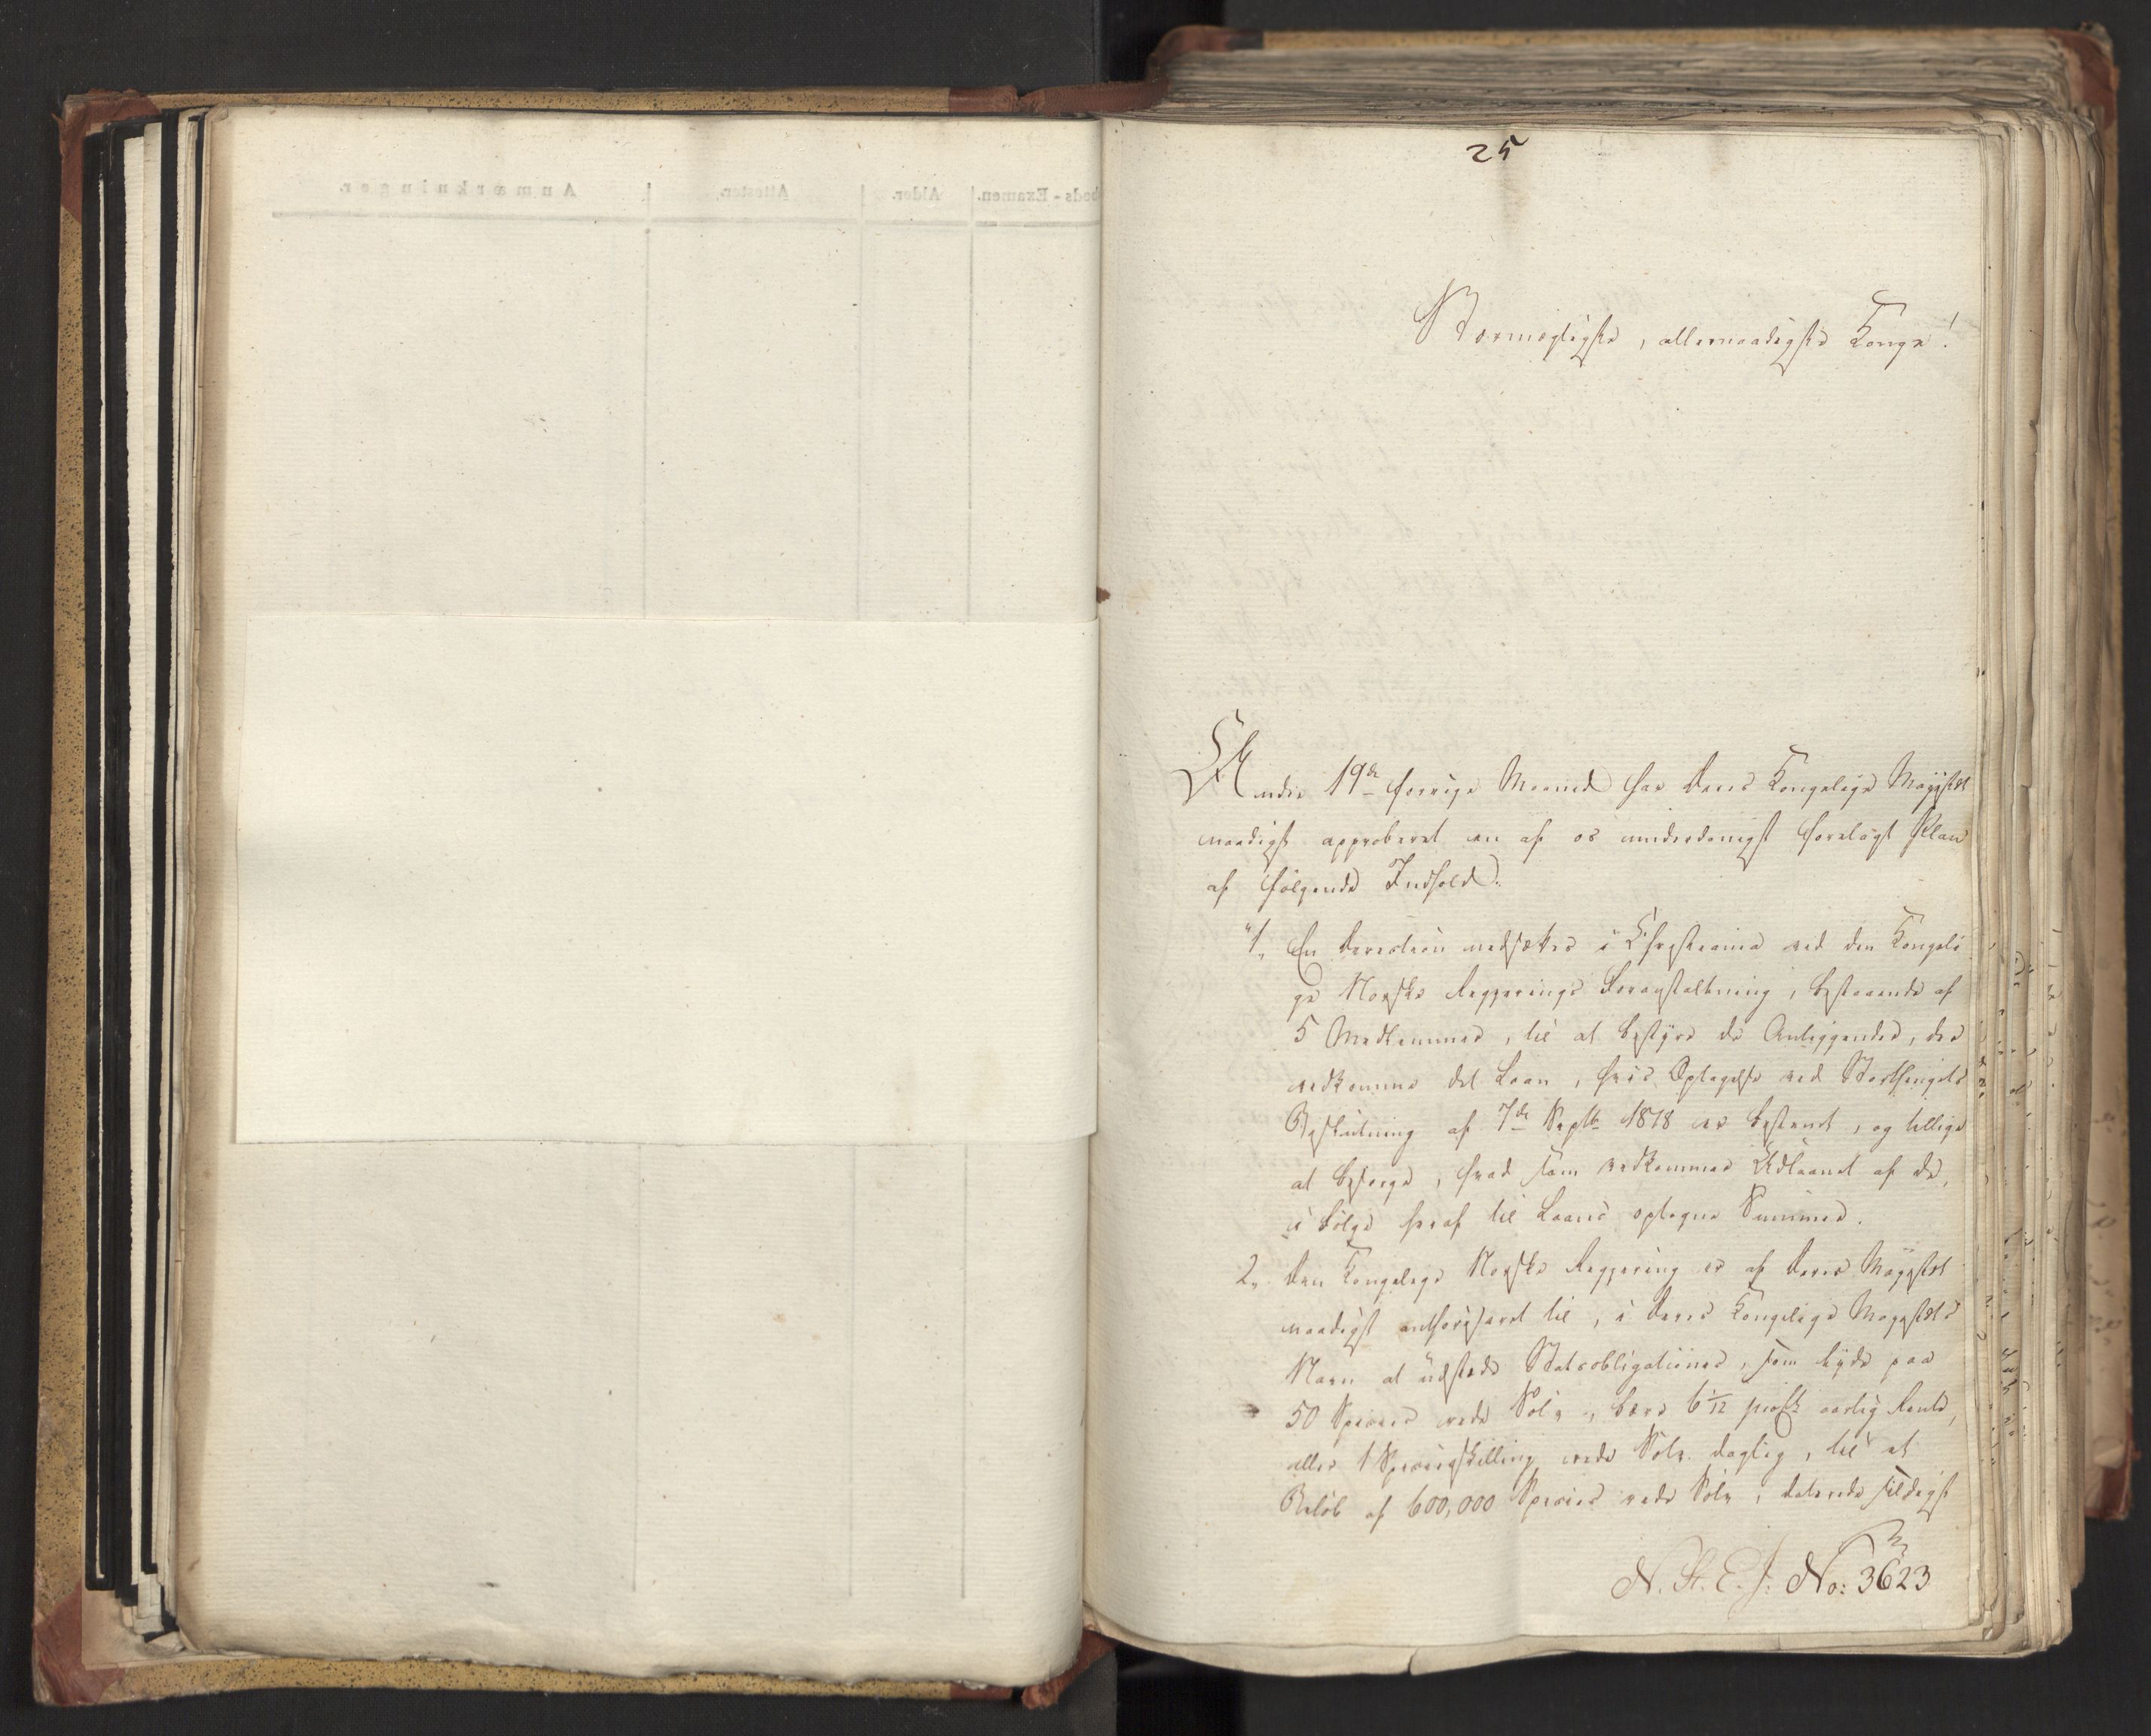 Anmærkninger.
Attester.
Alder.
beds-Examen.
25
Stormægtigste, allernaadigste Konge!
Under 19de forrige Maaned har Deres Kongelige Majestæt
naadigst approberet en af os underdanigst forelagt Plan
af følgende Indhold:
"1, En Direction nedsættes i Christiania ved den Kongeli
ge Norske Regjerings Foranstaltning, bestaaende af
5 Medlemmer, til at bestyre de Anliggender, der
vedkomme det Laan, hvis Optagelse ved Storthingets
Beslutning af 7de Septbr 1818 er bestemt, og tillige
at besørge, hvad som vedkommer Udlaanet af de,
i Følge heraf til Laans optagne Summer.
2, Den Kongelige Norske Regjering er af Deres Majestæt
naadigst authoriseret til, i Deres Kongelige Majestæts
Navn at udstede Statsobligationer, som lyde paa
50 Species rede Sølv, bære 6 1/12 proCt aarlig Rente,
eller 1 Speciesskilling rede Sølv daglig, til et
Beløb af 600,000 Species rede Sølv, daterede sildigst
N. St. E. J: No: 3623